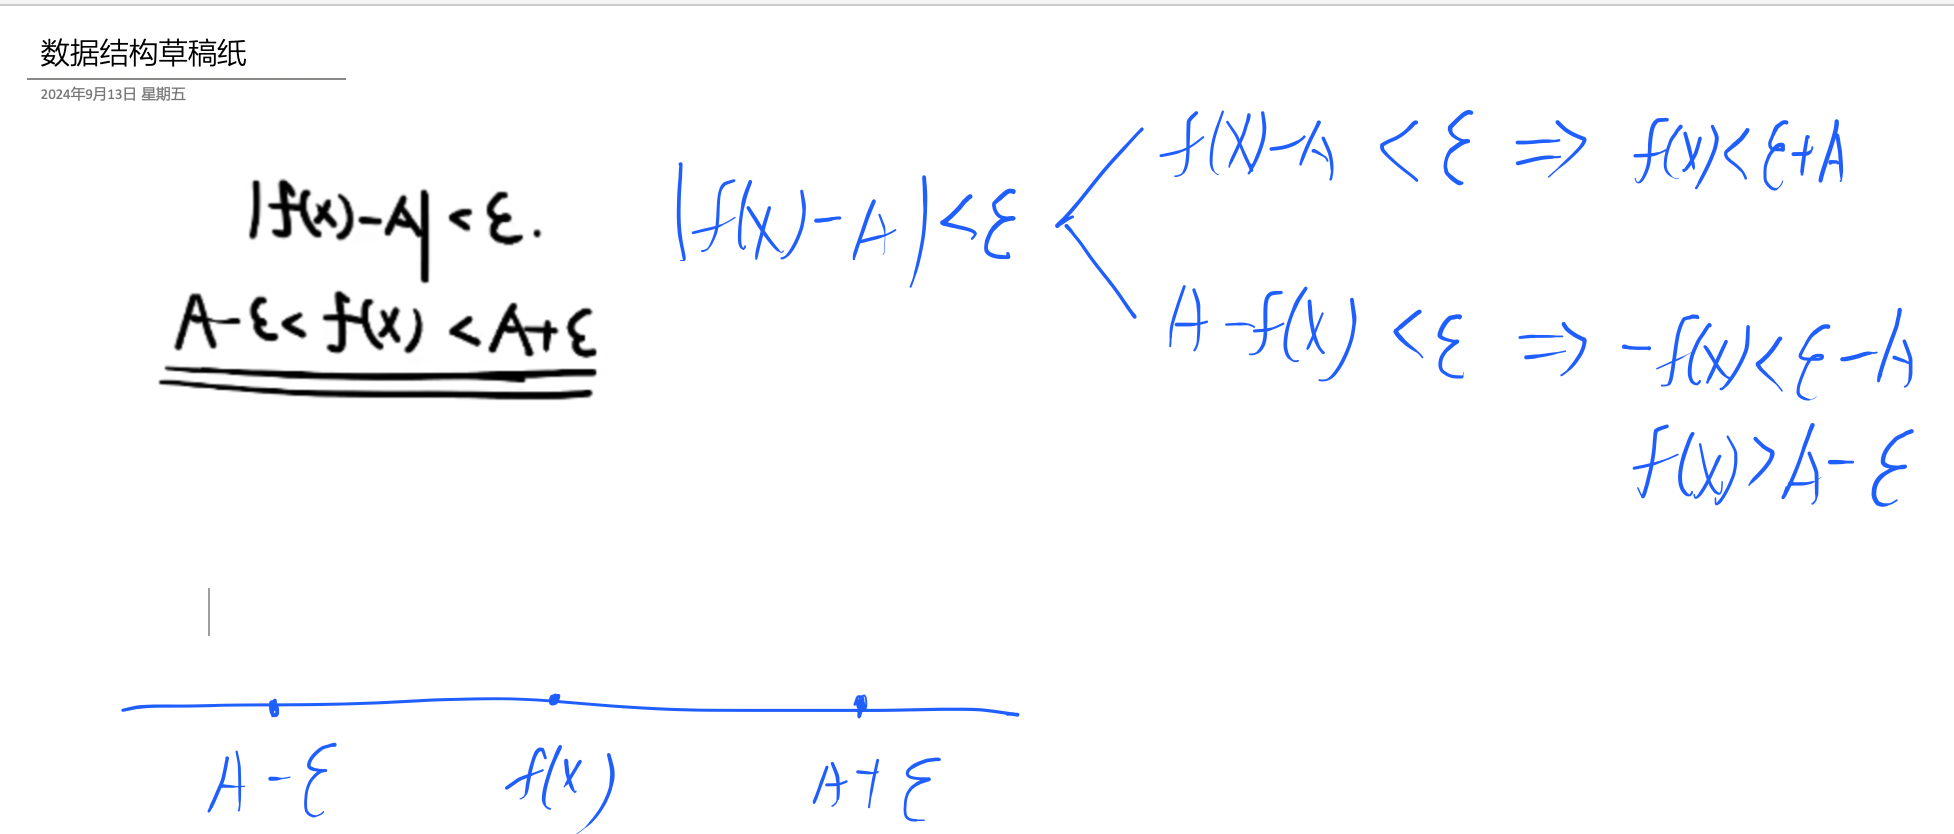 数据结构草稿纸
2024年9月13日 星期五
|f(x)-A|<ε.
A-ε<f(x)<A+ε
|f(x)-A|<ε
f(x)-A<ε ⇒ f(x)<ε+A
A-f(x)<ε ⇒ -f(x)<ε-A
f(x)>A-ε
A-ε f(x) A+ε